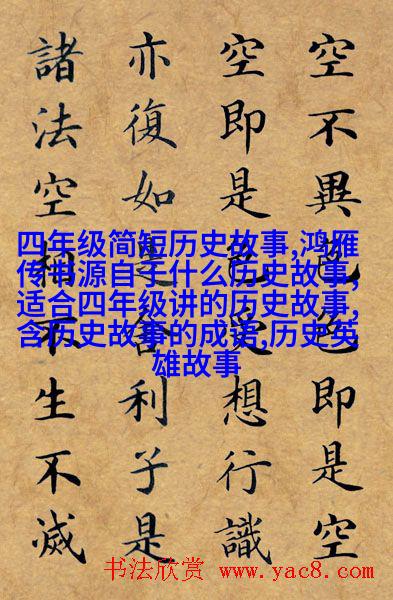 空不異色色即是空
空即是色受想行識
亦復如是舍利子是
諸法空相不生不滅
四年级简短历史故事,鸿雁
传书源自于什么历史故事,
适合四年级讲的历史故事,
含历史故事的成语,历史英
雄故事
书法欣赏 www.yac8.com